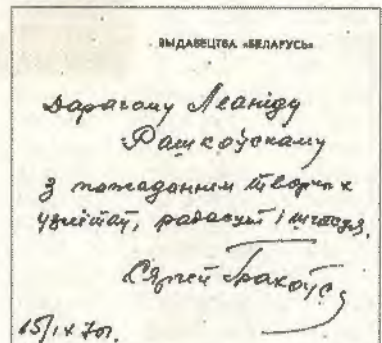 ВЫДАВЕЦТВА «БЕЛАРУСЬ»
Дарагому Леаніду
Рашкоўскаму
з пажаданнем творчых
узлётаў, радасці і шчасця.
Сяргей Гракоўс
15/IX 70г.